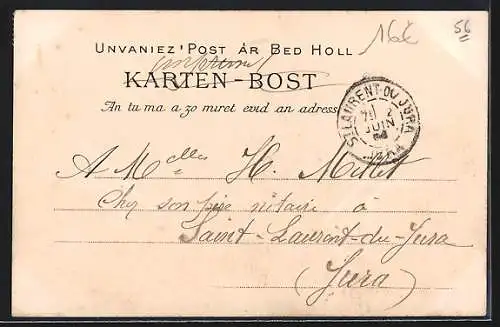 16€ 56
UNVANIEZ' POST AR BED HOLL
KARTEN-BOST
An tu ma a zo miret evid an adress
ST LAURENT-DU-JURA
2
JUIN
04
JURA
A Melles H. Millet
Chez son père notaire à
Saint-Laurent-du-Jura
(Jura)